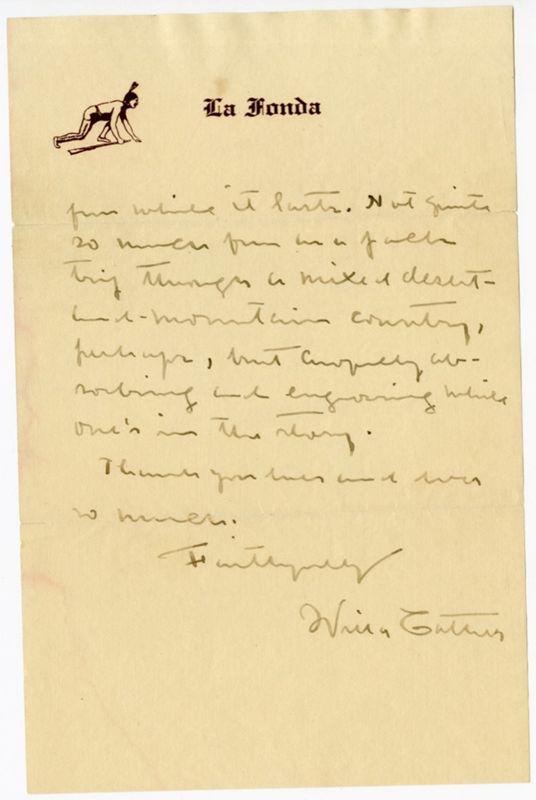 La Fonda
fun while it lasts. Not quite
so much fun as a pack
trip through a mixed desert-
and-mountain country,
perhaps, but awfully ab-
sorbing and engrossing while
one's in the story.
Thank you over and over
so much.
Faithfully
Willa Cather